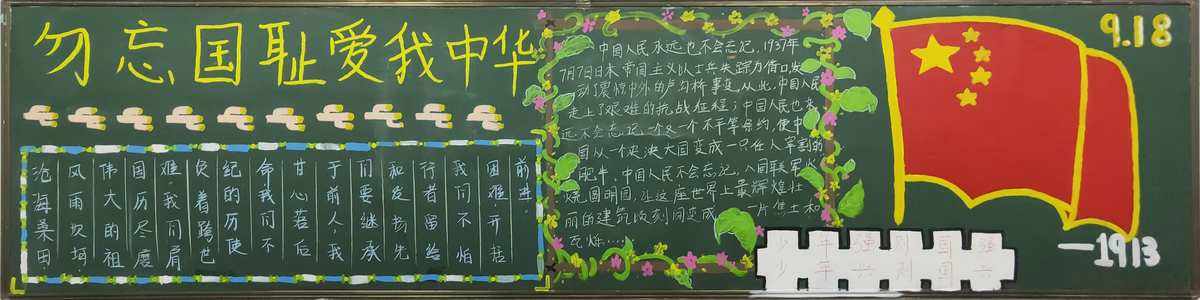 勿忘国耻爱我中华
沧海桑田,
风雨坎坷,
伟大的祖
国历尽磨
难,我们肩
负着跨世
纪的历使
命我们不
甘心若后
于前人,我
们要继承
和发扬先
行者留给
我们不怕
困难开拓
前进.
中国人民永远也不会忘记,1937年
7月7日日本帝国主义以士兵失踪为借口发
动了震惊中外的卢沟桥事变从此,中国人民
走上了艰难的抗战征程;中国人民也永
远不会忘记,一个又一个不平等条约,使中
国从一个泱泱大国变成一只任人宰割的
肥牛,中国人民不会忘记,八国联军火
烧圆明园,让这座世界上最辉煌壮
丽的建筑顷刻间变成一片焦土和
瓦烁……
9.18
—1913
少年强则国强
少年兴则国兴